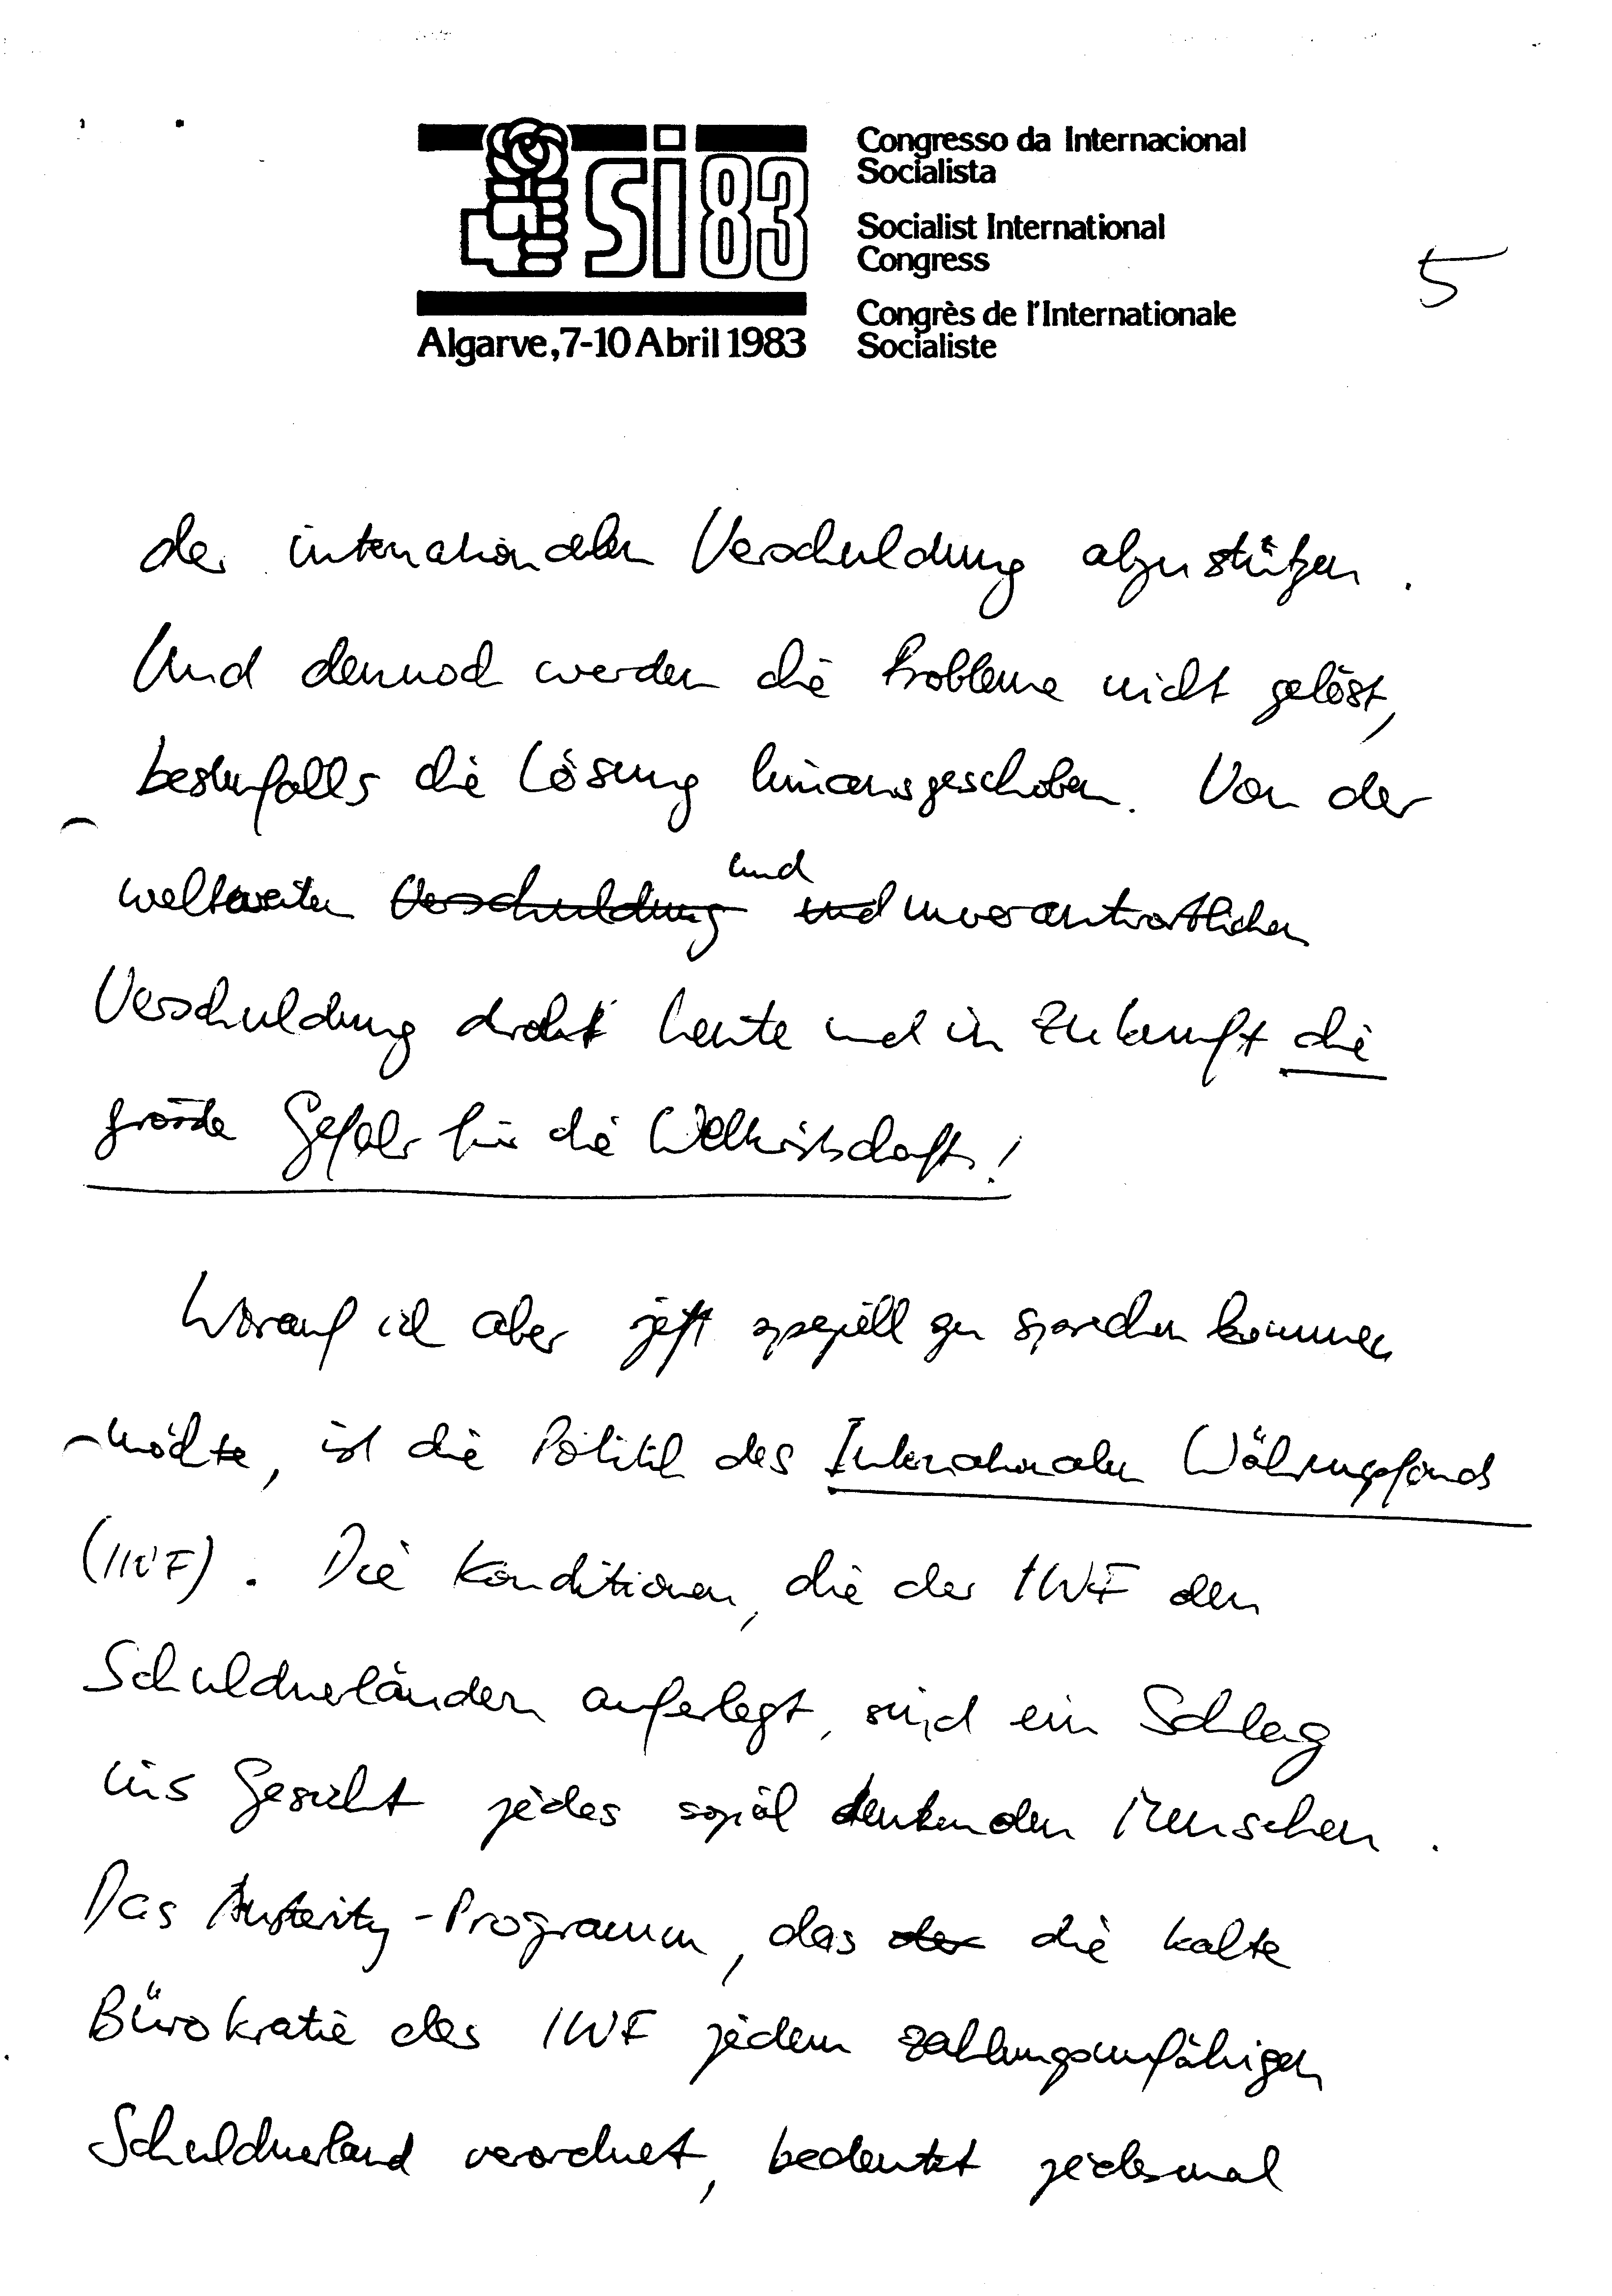 SI 83
Algarve, 7-10 Abril 1983
Congresso da Internacional
Socialista
Socialist International
Congress
Congrès de l'Internationale
Socialiste
5
der internationalen Verschuldung abzustützen.
Und dennoch werden die Probleme nicht gelöst,
bestenfalls die Lösung hinausgeschoben. Von der
und
weltweiten Verschuldung und unverantwortlichen
Verschuldung droht heute und in Zukunft die
größte Gefahr für die Weltwirtschaft!
Worauf ich aber jetzt speziell zu sprechen kommen
möchte, ist die Politik des Internationalen Währungsfonds
(IWF). Die Konditionen, die der IWF den
Schuldnerländern auferlegt, sind ein Schlag
ins Gesicht jedes sozial denkenden Menschen.
Das Austerity-Programm, das der die kalte
Bürokratie des IWF jedem zahlungsunfähigen
Schuldnerland verordnet, bedeutet jedesmal